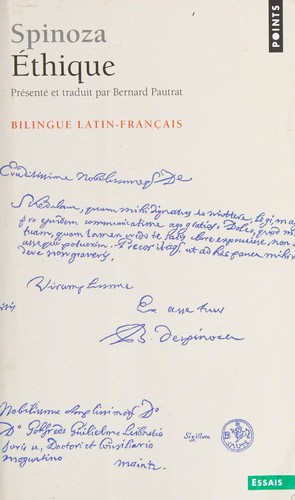 Spinoza
Éthique
Présenté et traduit par Bernard Pautrat
BILINGUE LATIN-FRANÇAIS
POINTS
Eruditissime Nobilissimeq De
Schedulam, quam mihi dignatus es mittere, legi
pro ejusdem communicatione ago gratias. Doleo, quod
tuam, quam tamen credo te satis clare exposuisse, non
assequi potuerim. Precor itaq, ut ad hæc pauca mihi
Vir amplissime
Ex asse tuus
B. despinoza
Nobilissimo Amplissimoq Do
Do Gotfredo Guilielmo Leibnitio
Juris u, Doctori et Consiliario
Moguntino
Maintz
Sigillum
ESSAIS